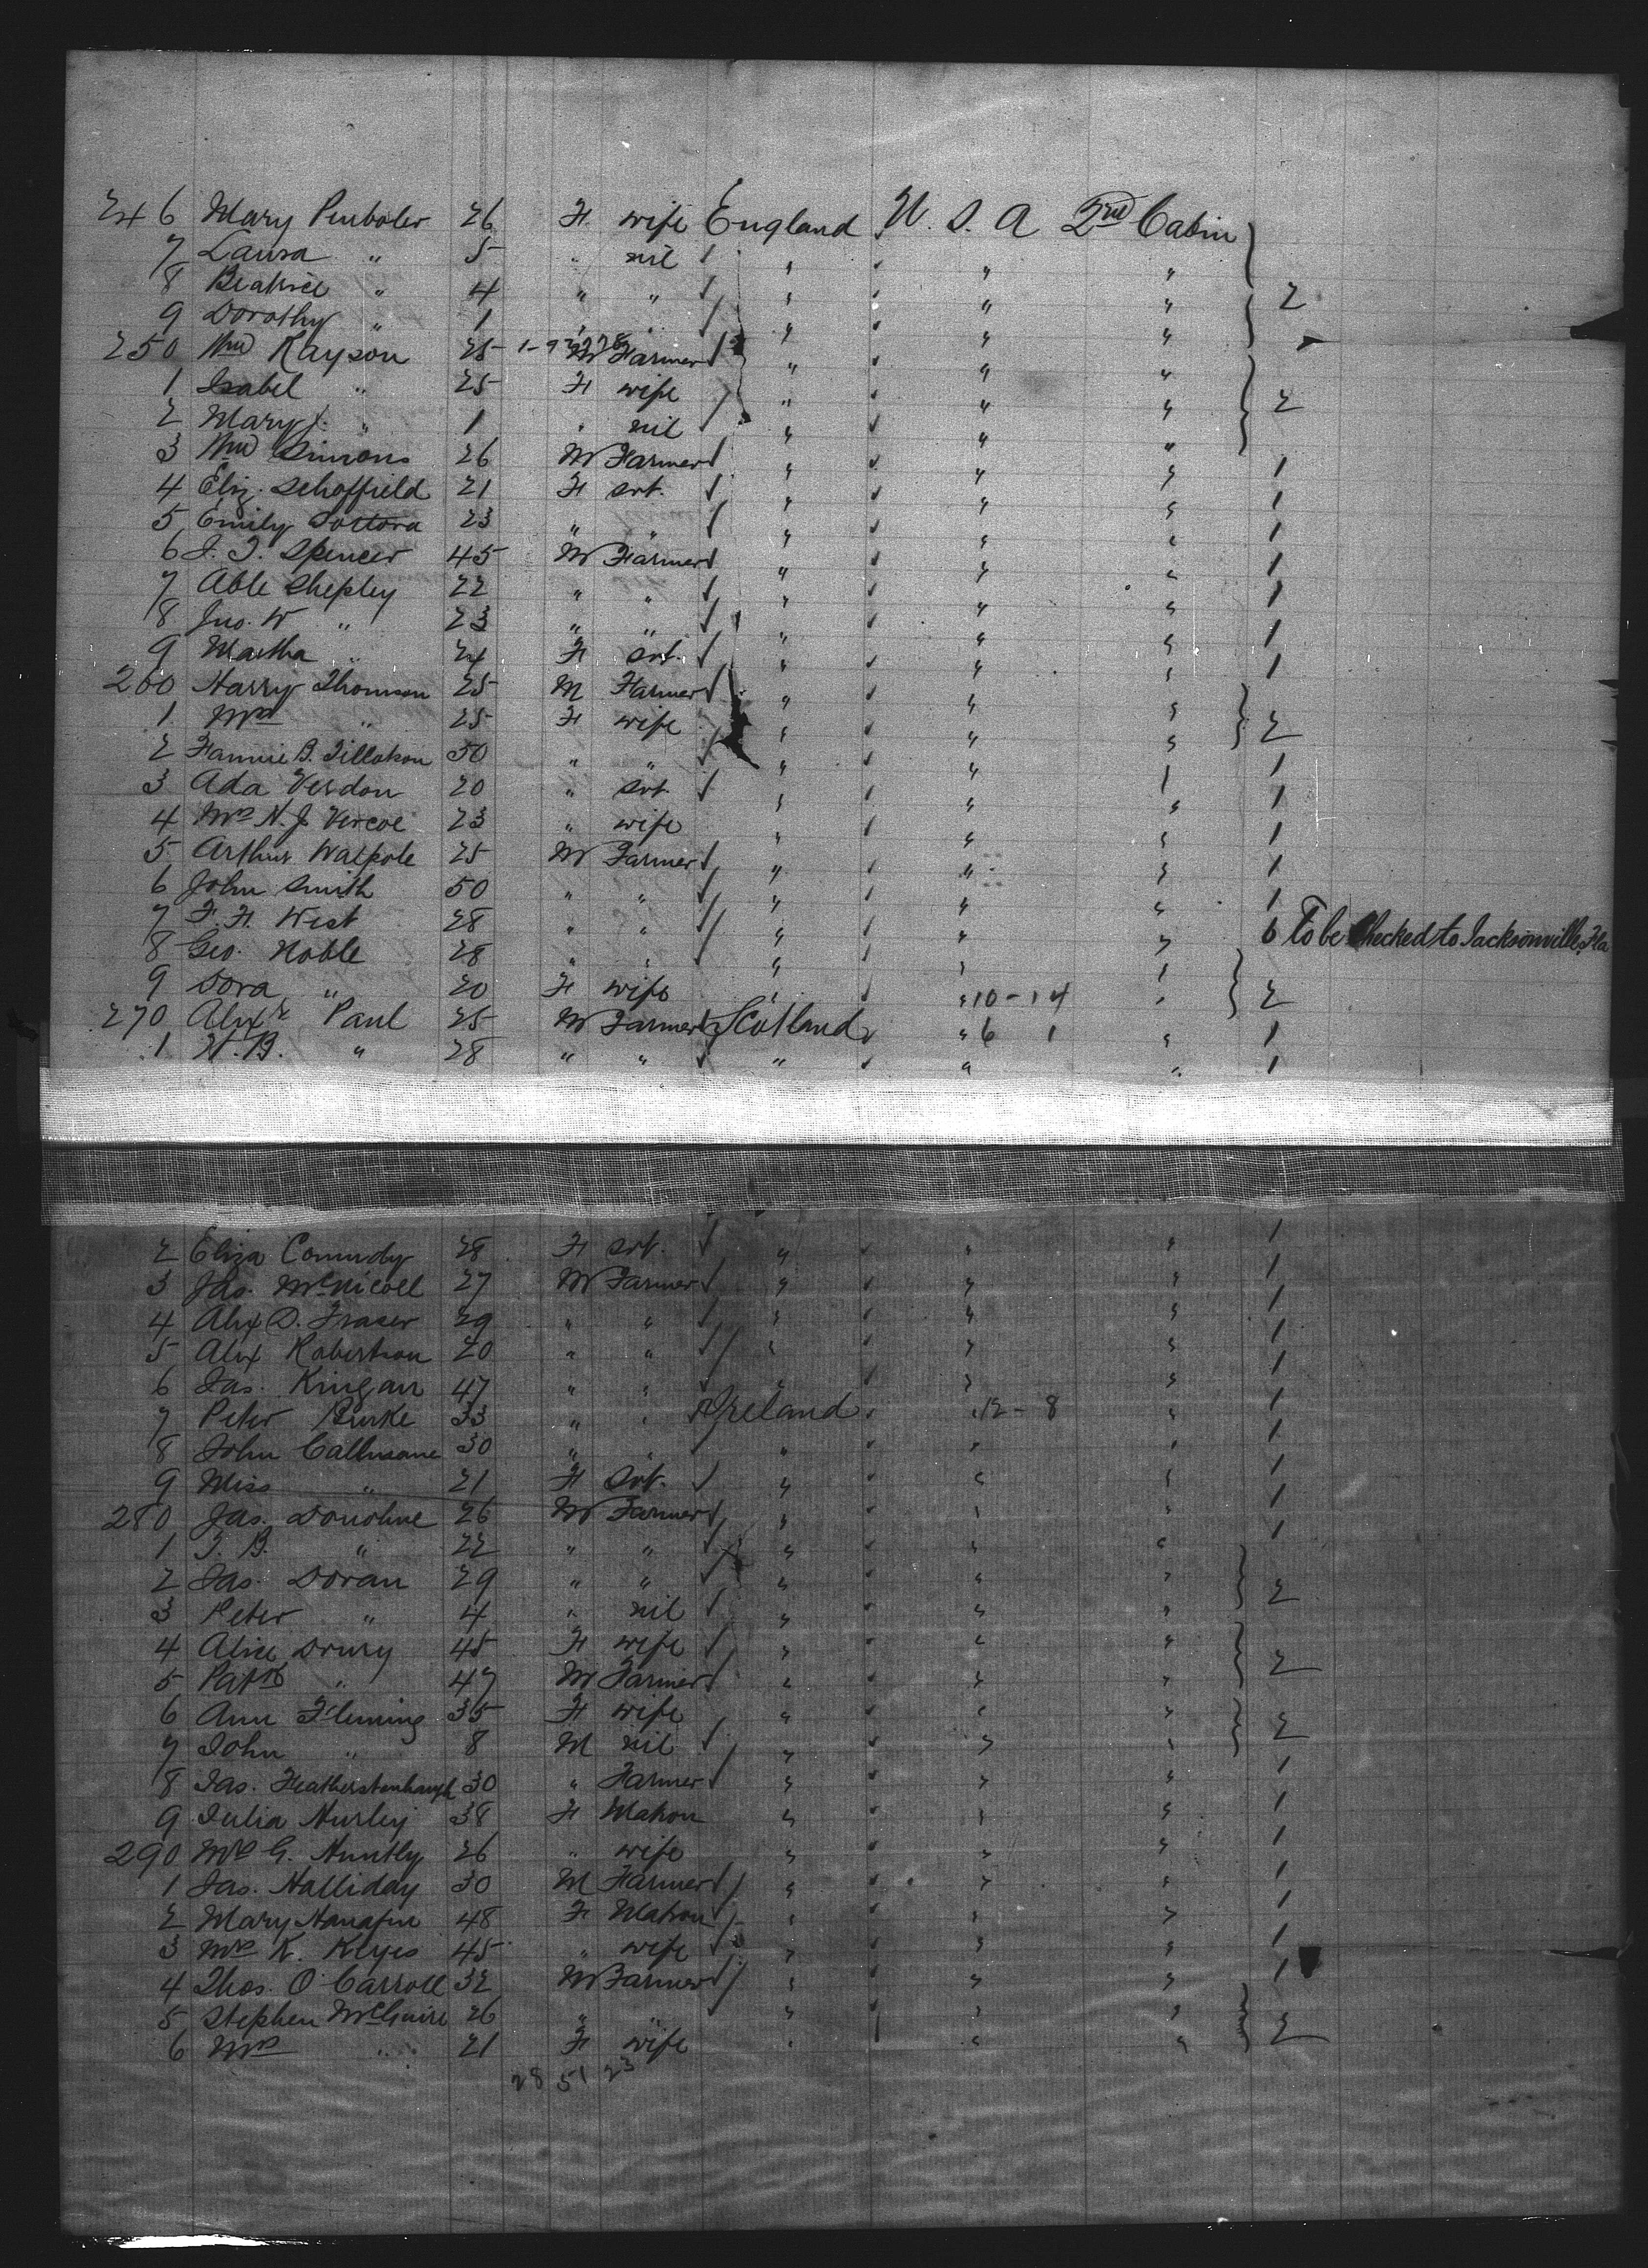 246 Mary 26 F. wife England U. S. A 2nd Cabin
7 Laura " 5 " nil " " "
8 Beatrice " 4 " " " " " 2
9 Dorothy " 1 " " " " "
250 Wm Rayson 25 M Farmer " " "
1 Isabel " 25 F wife " " " 2
2 Mary J. " 1 " nil " " "
3 Wm Simons 26 M Farmer " " " 1
4 Eliz. Schoffield 21 F svt. " " " 1
5 Emily 23 " " " " " 1
6 J. T. Spencer 45 M Farmer " " " 1
7 Able Shepley 22 " " " " " 1
8 Jno. W " 23 " " " " " 1
9 Martha " 24 F svt. " " " 1
260 Harry Thomson 25 M Farmer " " "
1 Mrs " 25 F wife " " " 2
2 Fannie B. Tillotson 50 " " " " " 1
3 Ada Verdon 20 " svt. " " " 1
4 Mrs N. J. Vercoe 23 " wife " " " 1
5 Arthur Walpole 25 M Farmer " " " 1
6 John Smith 50 " " " " " 1
7 F. H. West 28 " " " " " 6 To be Checked to Jacksonville, Fla
8 Geo. Noble 28 " " " " "
9 Dora " 20 F wife " " 10-14 " 2
270 Alexr Paul 25 M Farmer Scotland " 6 1 " 1
1 W. B. " 28 " " " " " 1
2 Eliza 28 F svt. " " " 1
3 Jas. McNicoll 27 M Farmer " " " 1
4 Alex D. Fraser 29 " " " " " 1
5 Alex Robertson 20 " " " " " 1
6 Jas. Kingan 47 " " " " " 1
7 Peter Burke 33 " " Ireland " 12-8 " 1
8 John Callinane 30 " " " " " 1
9 Miss " 21 F svt. " " " 1
280 Jas. Donohue 26 M Farmer " " " 1
1 T. B. " 22 " " " " " 1
2 Jas. Doran 29 " " " " " 2
3 Peter " 4 " nil " " "
4 Alice Drury 45 F wife " " " 2
5 Patk " 47 M Farmer " " "
6 Ann Fleming 35 F wife " " " 2
7 John " 8 M nil " " "
8 Jas. Featherstonhaugh 30 " Farmer " " " 1
9 Julia Hurley 38 F Matron " " " 1
290 Mrs G. Huntly 26 " wife " " " 1
1 Jas. Halliday 30 M Farmer " " " 1
2 Mary Hanafin 48 F Matron " " " 1
3 Mrs K. Keyes 45 " wife " " " 1
4 Thos. O'Carroll 32 M Farmer " " " 1
5 Stephen McGuire 26 " " " " " 2
6 Mrs " 21 F wife " " "
28 51 23